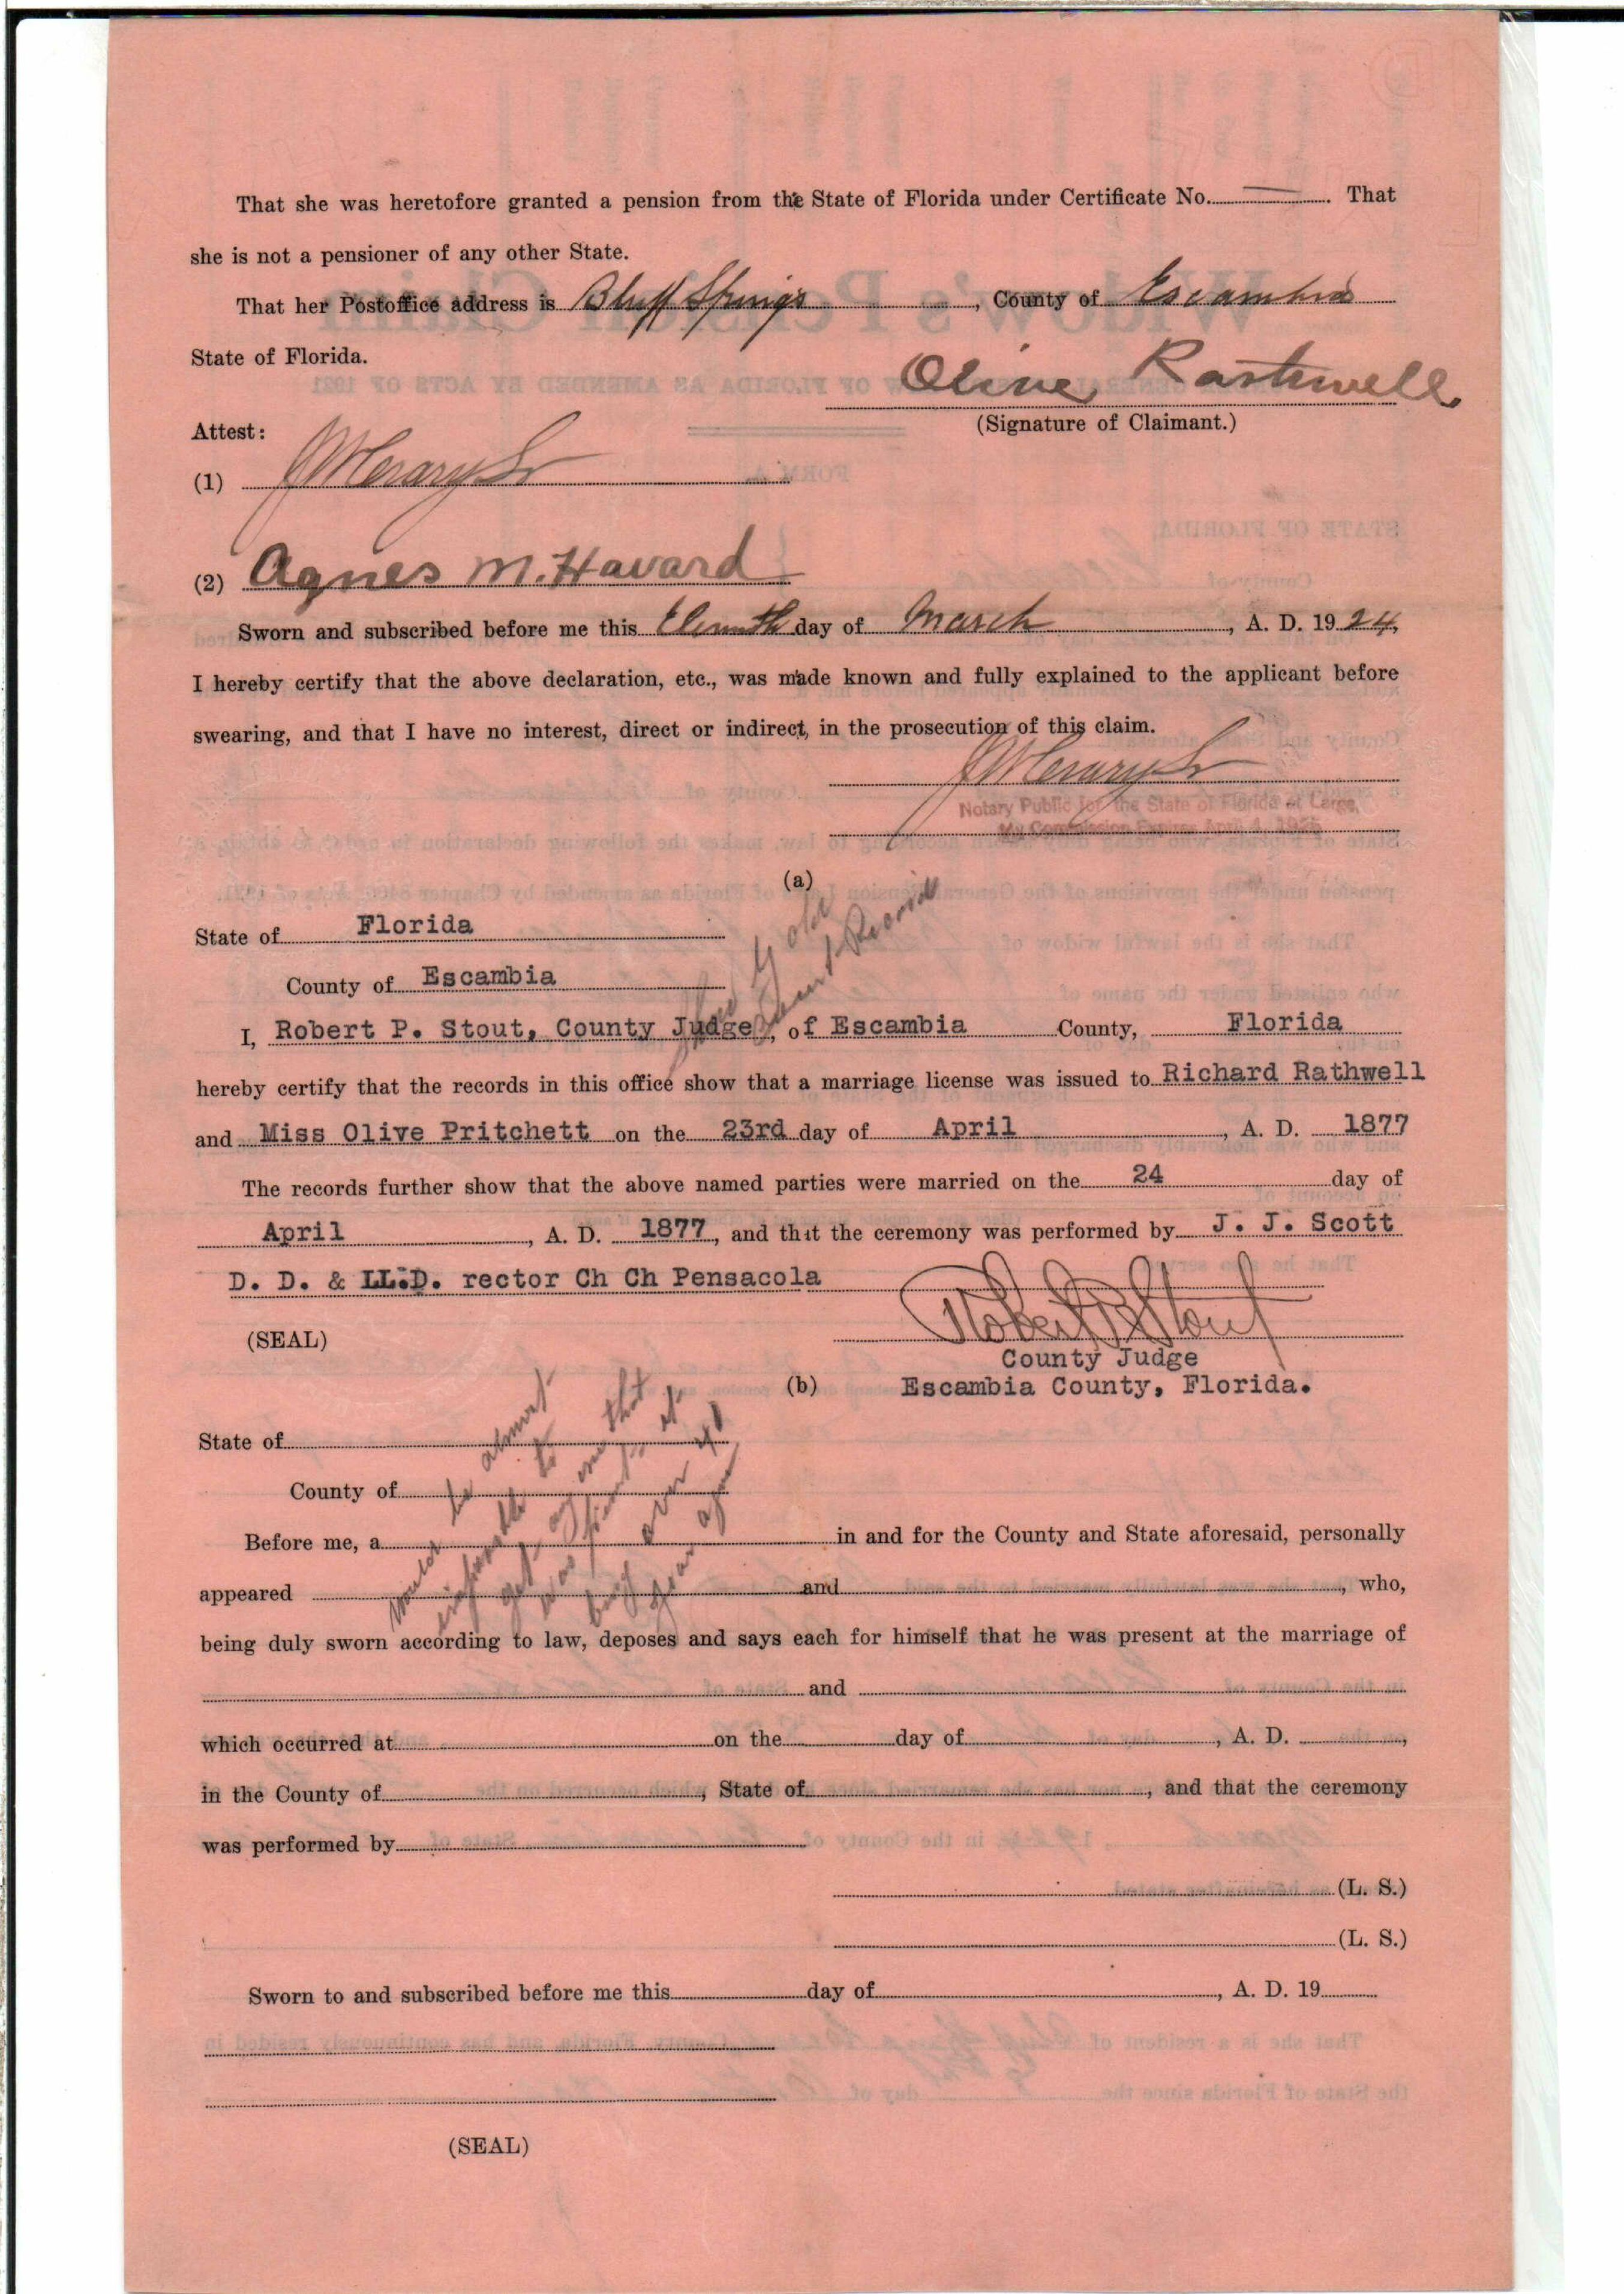 That she was heretofore granted a pension from the State of Florida under Certificate No. ——. That
she is not a pensioner of any other State.
That her Postoffice address is Bluff Springs, County of Escambia
State of Florida.
Olive Rathwell
(Signature of Claimant.)
Attest:
(1)
(2) Agnes M. Havard
Sworn and subscribed before me this Eleventh day of March, A. D. 1924,
I hereby certify that the above declaration, etc., was made known and fully explained to the applicant before
swearing, and that I have no interest, direct or indirect, in the prosecution of this claim.
Notary Public for the State of Florida at Large,
My Commission Expires April 4, 
(a)
State of Florida
County of Escambia
I, Robert P. Stout, County Judge, of Escambia County, Florida
hereby certify that the records in this office show that a marriage license was issued to Richard Rathwell
and Miss Olive Pritchett on the 23rd day of April, A. D. 1877
The records further show that the above named parties were married on the 24 day of
April, A. D. 1877, and that the ceremony was performed by J. J. Scott
D. D. & LL.D. rector Ch Ch Pensacola
Robert P Stout
(SEAL)
County Judge
(b) Escambia County, Florida.
State of
County of
Before me, a in and for the County and State aforesaid, personally
appeared and , who,
being duly sworn according to law, deposes and says each for himself that he was present at the marriage of
and
which occurred at on the day of , A. D. ,
in the County of , State of , and that the ceremony
was performed by
(L. S.)
(L. S.)
Sworn to and subscribed before me this day of , A. D. 19
(SEAL)